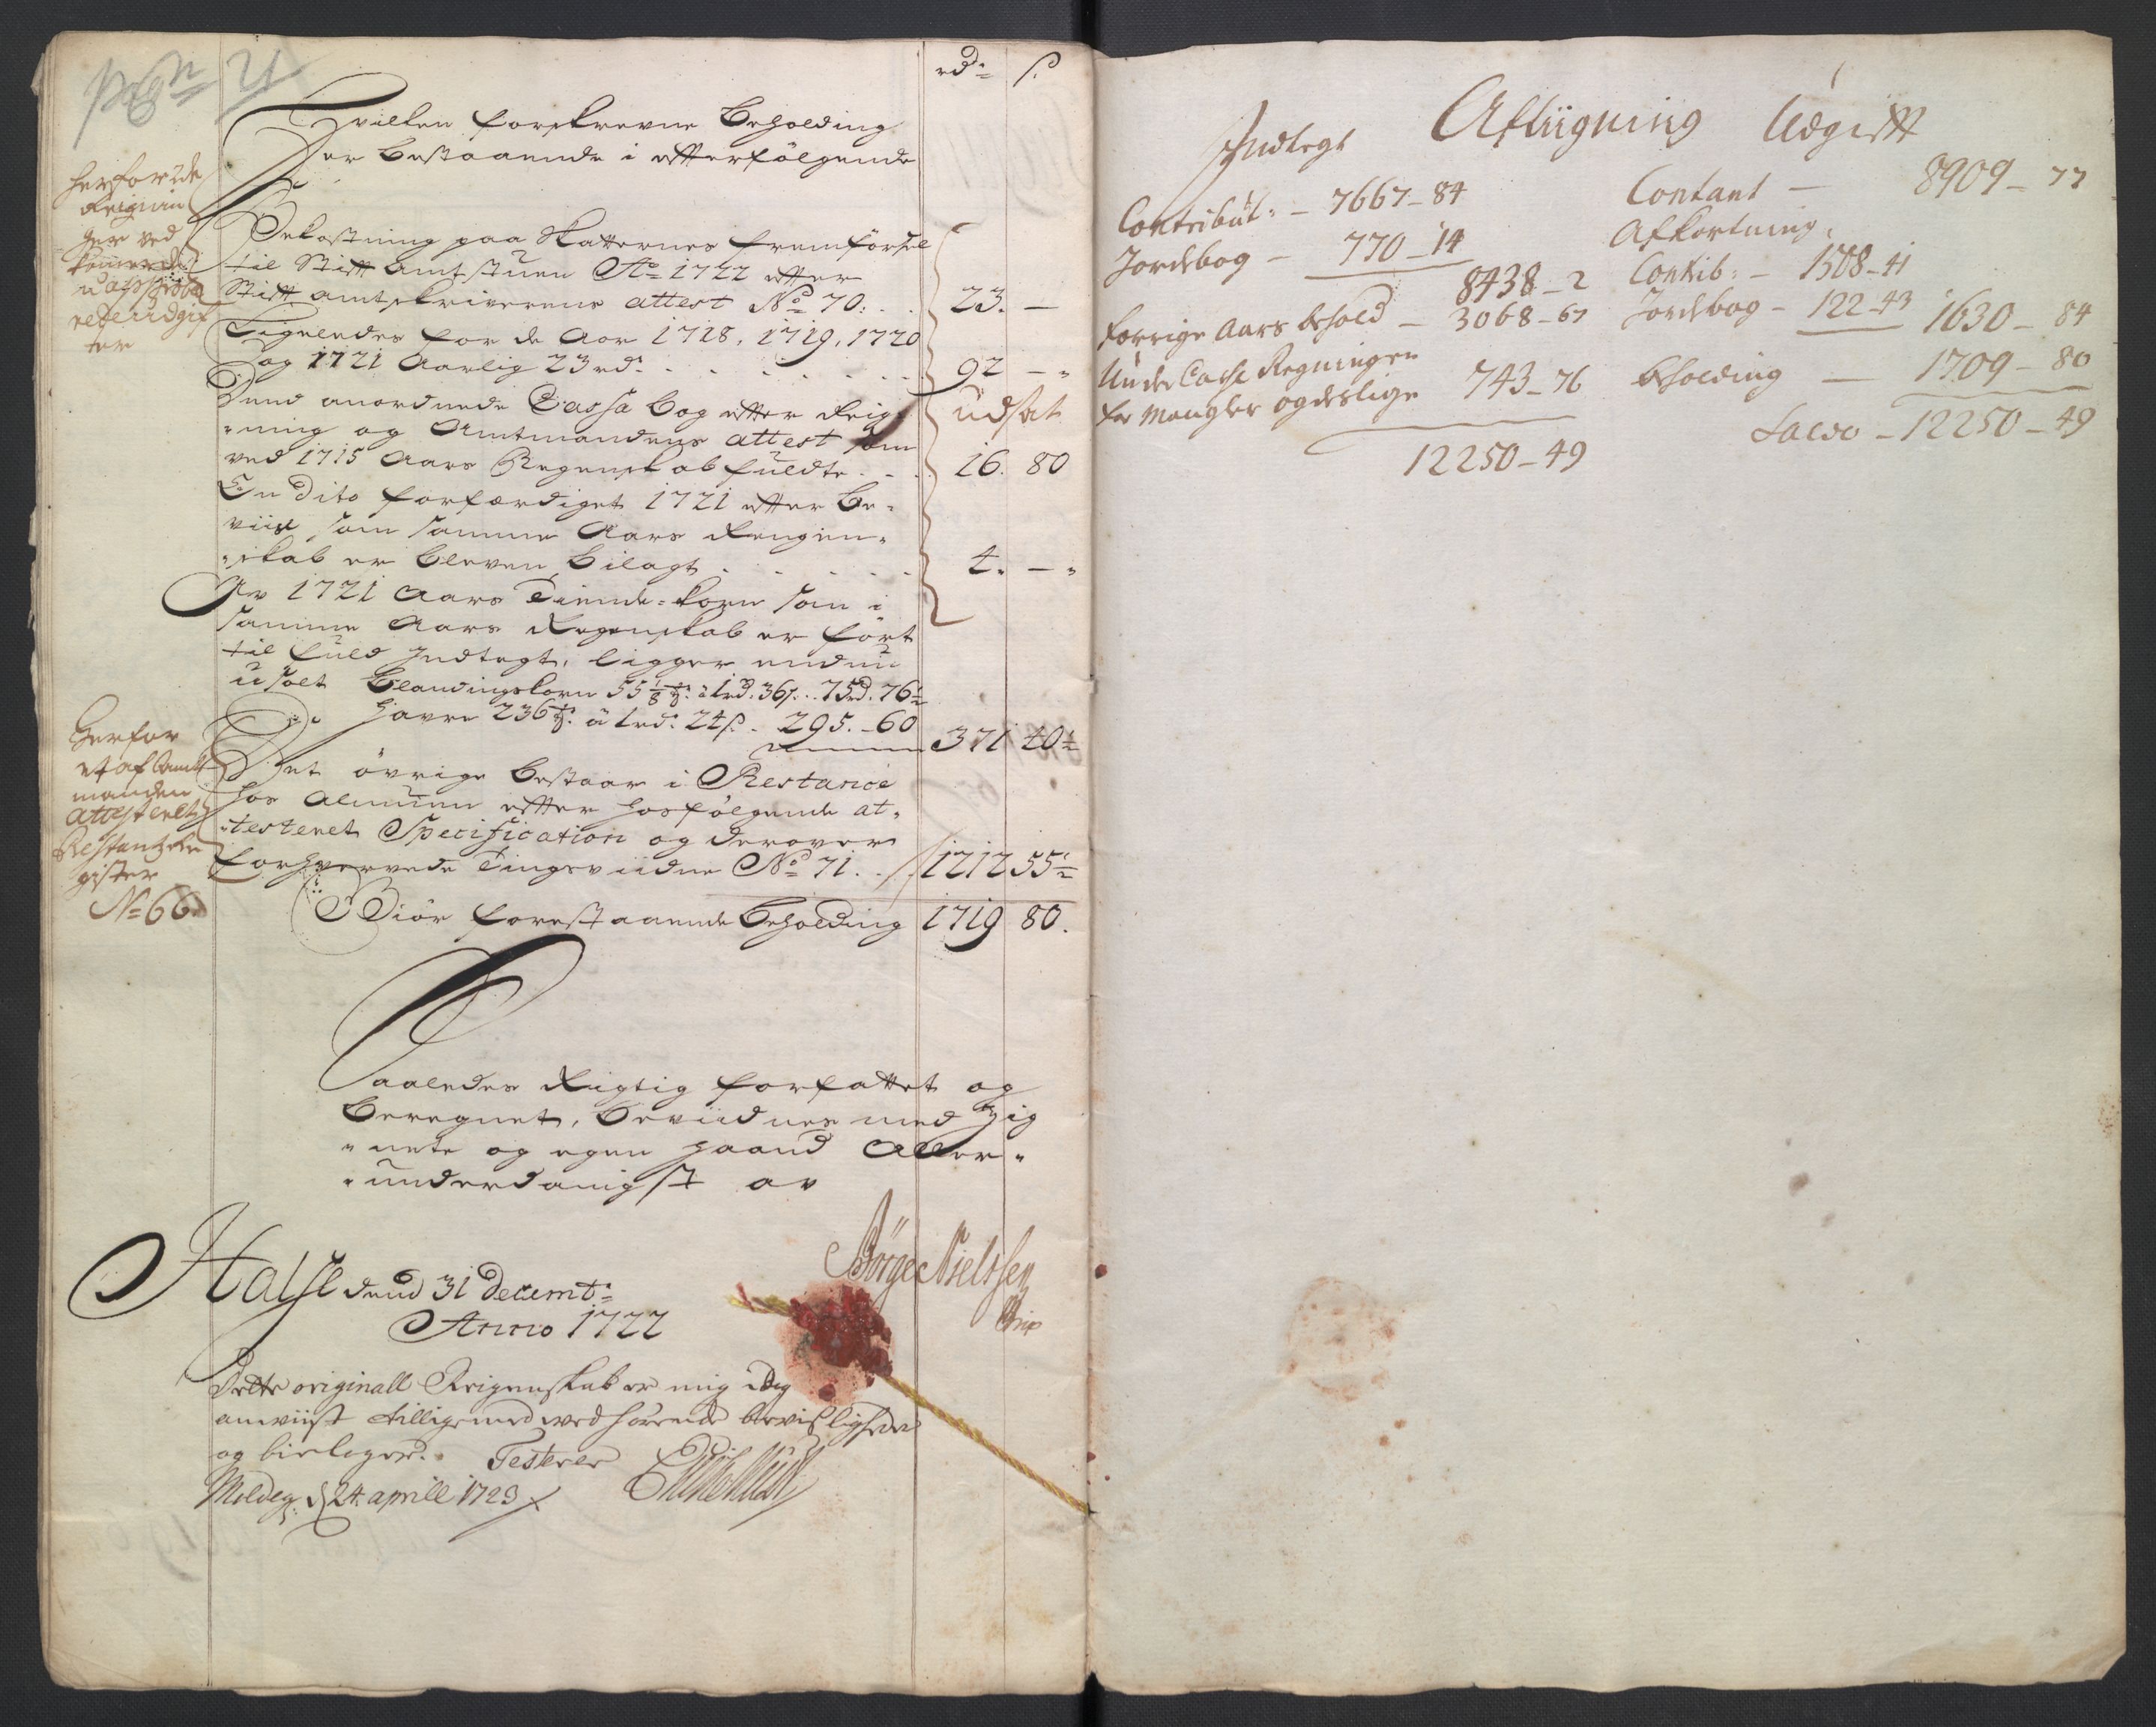 Pag: 21
rd: ß
Hvilken forskrevne Beholding
er bestaaende i efterfølgende
Bekostning paa Skatternes fremførsel
til Stift Amtstuen Ao 1722 efter
Stift amtskriverens attest No 70: . . 23. —
Ligeledes for de Aar 1718, 1719, 1720
og 1721 Aarlig 23 rd: . . . 92 — "
Dend anordnede Cassa bog efter Reig= udsat
=ning og Amtmandens attest som
ved 1715 Aars Regenskab fuldte . . 16. 80
En dito forfærdiget 1721 efter be=
viis som samme Aars Rengen=
=skab er bleven bilagt . . . 4. — "
Av 1721 Aars Tiende-korn som i
samme Aars Regenskab er ført
til fuld Indtegt, ligger endnu
usolt Blandingskorn 55 1/8 tr: a 1 rd. 36 ß. . 75 rd. 76 1/2
Do havre 236 tr: â 1 rd: 24 ß . 295. - 60
371 40 1/2
Det øvrige bestaar i Restance
hos Almuen efter hosfølgende at=
=testeret Specification og derover
forhvervede Tingsvidne No 71. . 1212 55 1/2
Giør forestaaende Beholding 1719 80.
herforude
Reignin
ger ved
kommende
uapprobe
rede udgif
ter
Herfor
et af Amt
manden
attesteret
Restantz Re
gister
No 66
Saaledes Rigtig forfattet og
beregnet, bevidnes med Zig
=nete og egen haand Aller=
=underdanigst av
Børge Nielssen
Halse dend 31 Decemb:
Anno 1722
Dette originall Reigenskab er mig i dag
anviist tilligemed wedhørende bevisligheder
og bielager. Testerer
Molde d 24. aprill 1723
Afliigning
Indtegt Udgifft
Contribut: — 7667 — 84
Jordebog — 770 — 14
8438 — 2
forrige Aars behold — 3068 — 67
Under Casse Regningen
for Mangler og deslige 743 — 76
12250 — 49
Contant — 8909 — 77
Afkortning,
Contrib: — 1508 — 41
Jordebog — 122 — 43 1630 — 84
beholding — 1709 — 80
Saldo — 12250 — 49